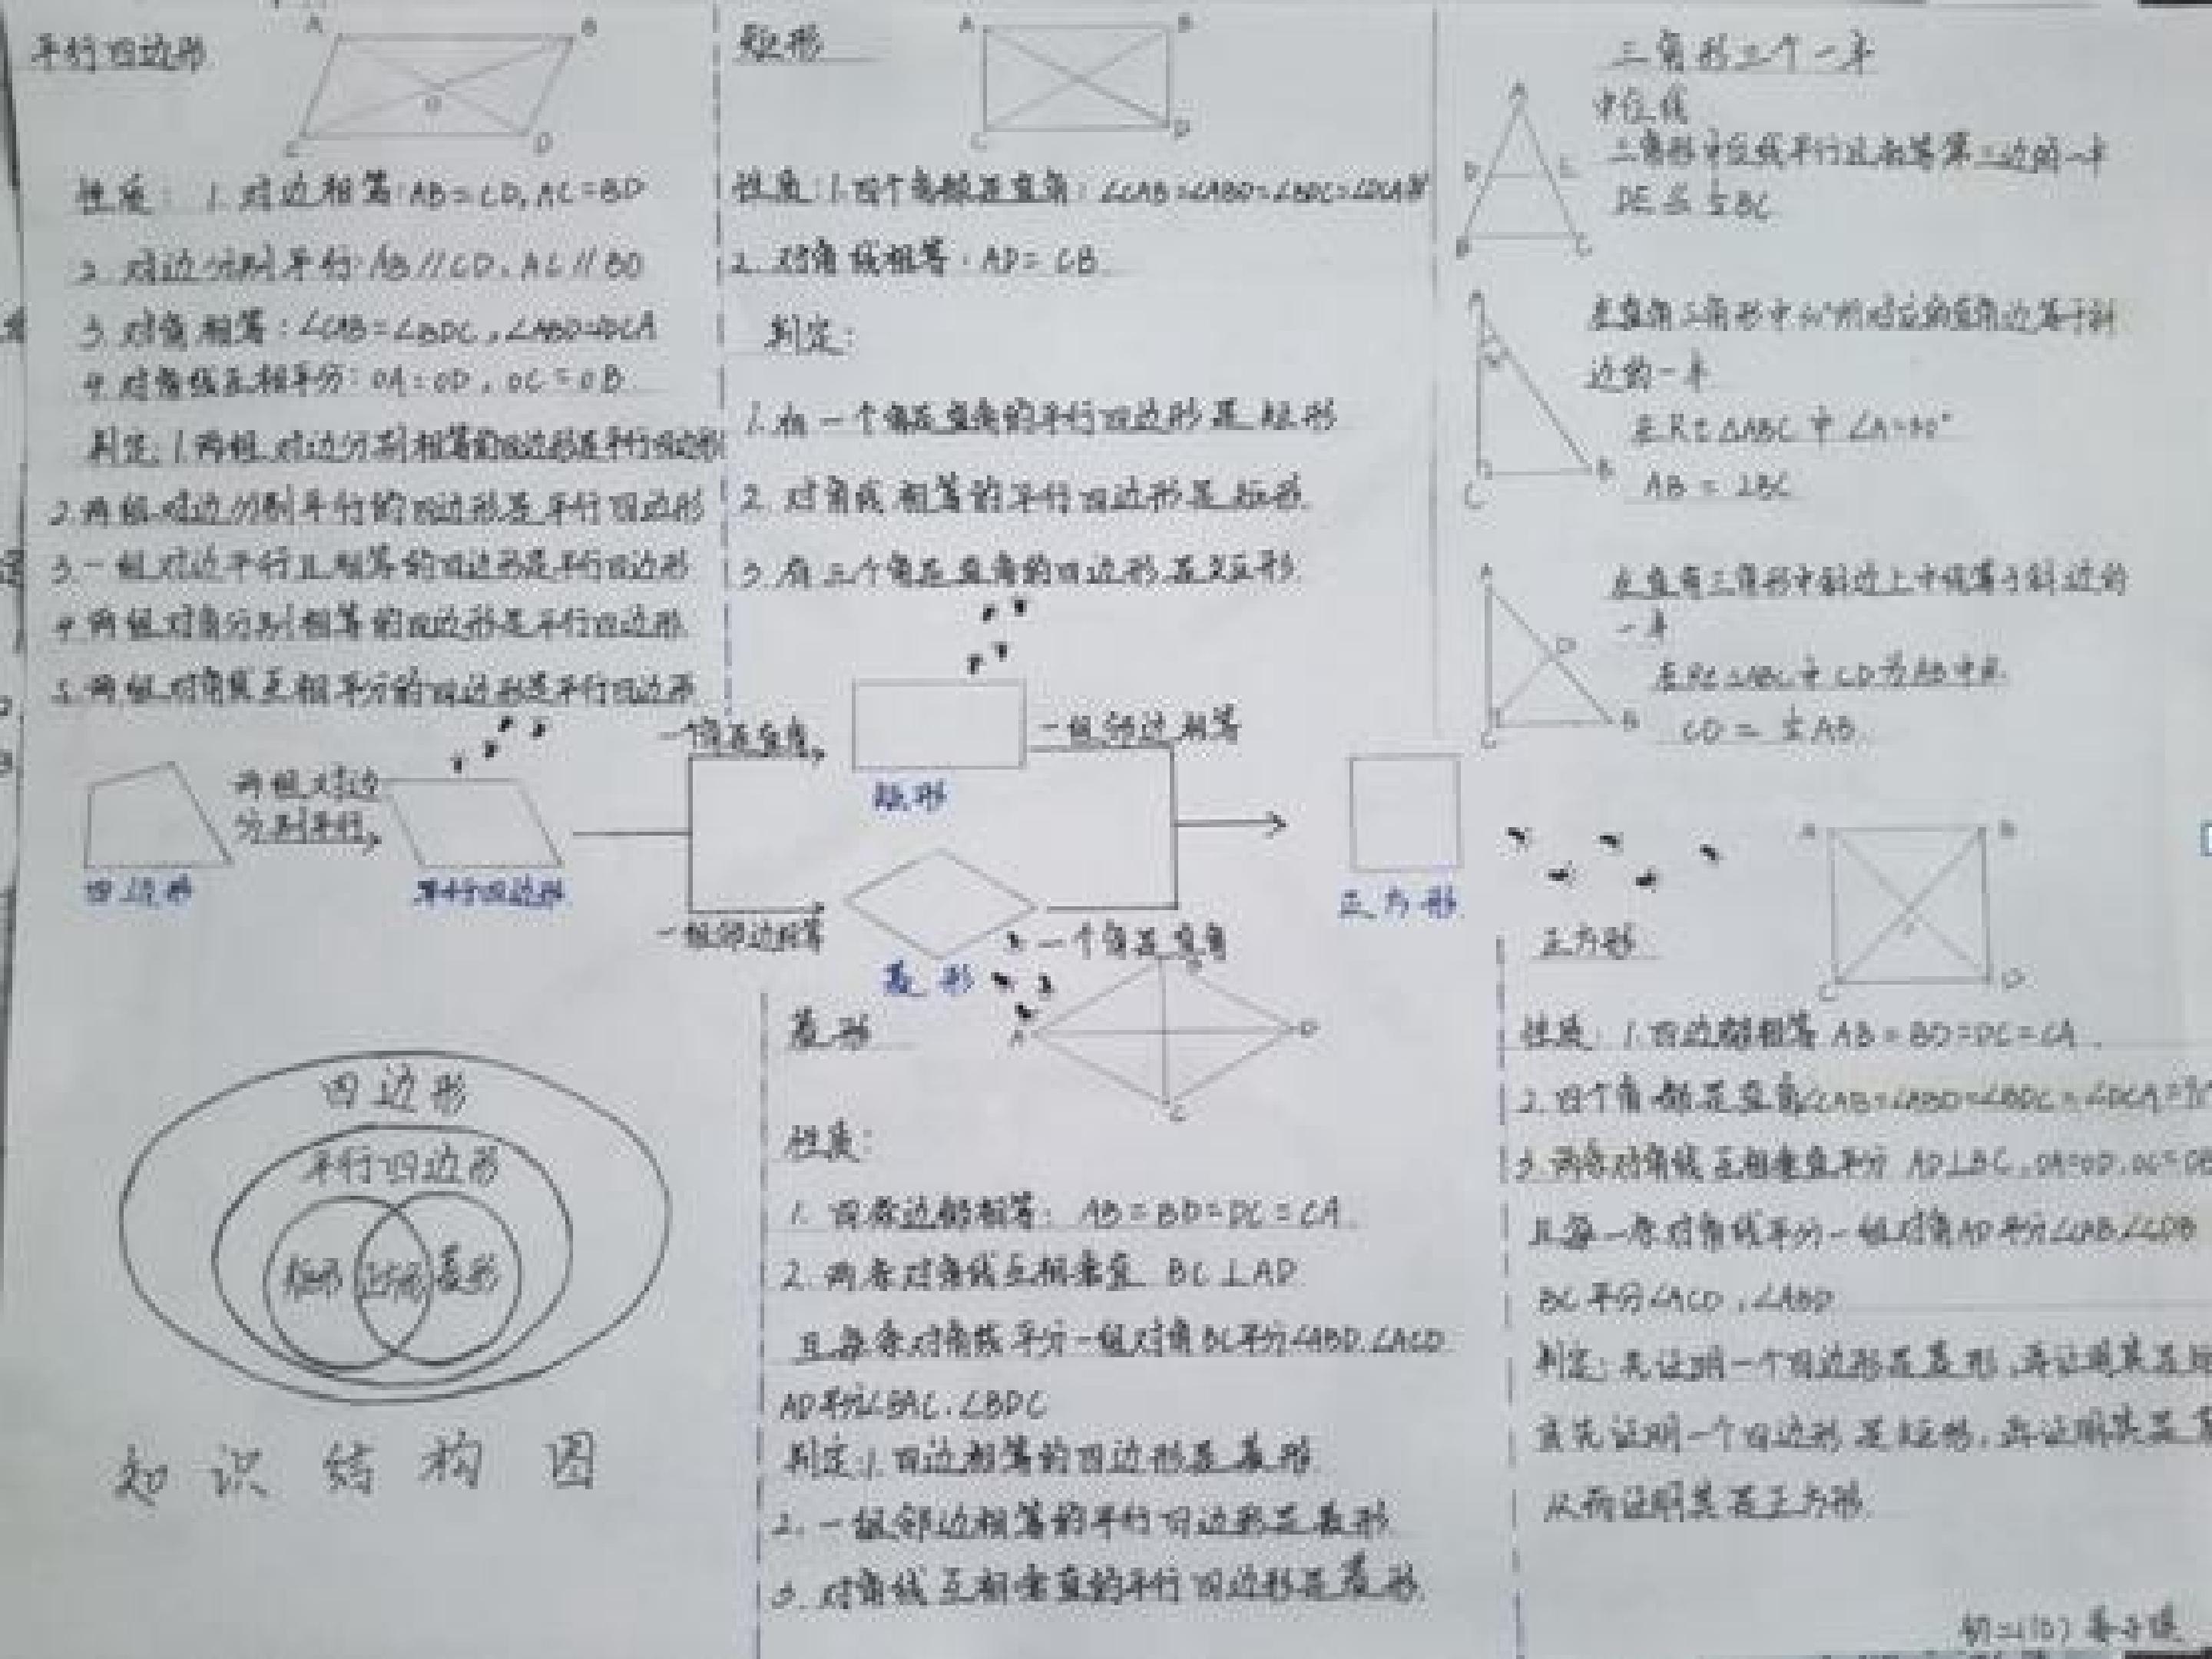 平行四边形
A
B
O
C
D
性质：1.对边相等:AB=CD,AC=BD
2.对边分别平行:AB//CD,AC//BD
3.对角相等:∠CAB=∠BDC,∠ABD=∠DCA
4.对角线互相平分:OA=OD,OC=OB
判定:1.两组对边分别相等的四边形是平行四边形
2.两组对边分别平行的四边形是平行四边形
3.一组对边平行且相等的四边形是平行四边形
4.两组对角分别相等的四边形是平行四边形
5.两组对角线互相平分的四边形是平行四边形
矩形
A
B
C
D
性质:1.四个角都是直角:∠CAB=∠ABD=∠BDC=∠DCA
2.对角线相等:AD=CB
判定:
1.有一个角是直角的平行四边形是矩形
2.对角线相等的平行四边形是矩形.
3.有三个角是直角的四边形是矩形.
三角形三个一半
中位线
三角形中位线平行且相等第三边的一半
DE
BC
A
D
E
B
C
在直角三角形中
对应的直角边等于斜
边的一半
在Rt△ABC中 ∠A=30°
AB = 2BC
A
C
B
在直角三角形中斜边上中线等于斜边的
一半
在Rt△ABC中 CD为AB中线
CD = ½AB.
A
D
C
B
四边形
两组对边
分别平行
平行四边形
一个角是直角
矩形
一组邻边相等
一组邻边相等
菱形
一个角是直角
正方形
四边形
平行四边形
矩形
正方形
菱形
知识结构图
菱形
A
B
D
C
性质:
1.四条边都相等: AB=BD=DC=CA
2.两条对角线互相垂直 BC⊥AD
且每条对角线平分一组对角BC平分∠ABD.∠ACD
AD平分∠BAC.∠BDC
判定:1.四边相等的四边形是菱形
2.一组邻边相等的平行四边形是菱形
3.对角线互相垂直的平行四边形是菱形.
正方形
A
B
C
D
性质:1.四边都相等 AB=BD=DC=CA.
2.四个角都是直角∠CAB=∠ABD=∠BDC=∠DCA=
3.两条对角线互相垂直平分 AD⊥BC,OA=OD,OC=OB
且每一条对角线平分一组对角AD平分∠CAB.∠CDB
BC平分∠ACD,∠ABD
判定:先证明一个四边形是菱形,再证明其是
先证明一个四边形是矩形,再证明其是
从而证明其是正方形.
初二